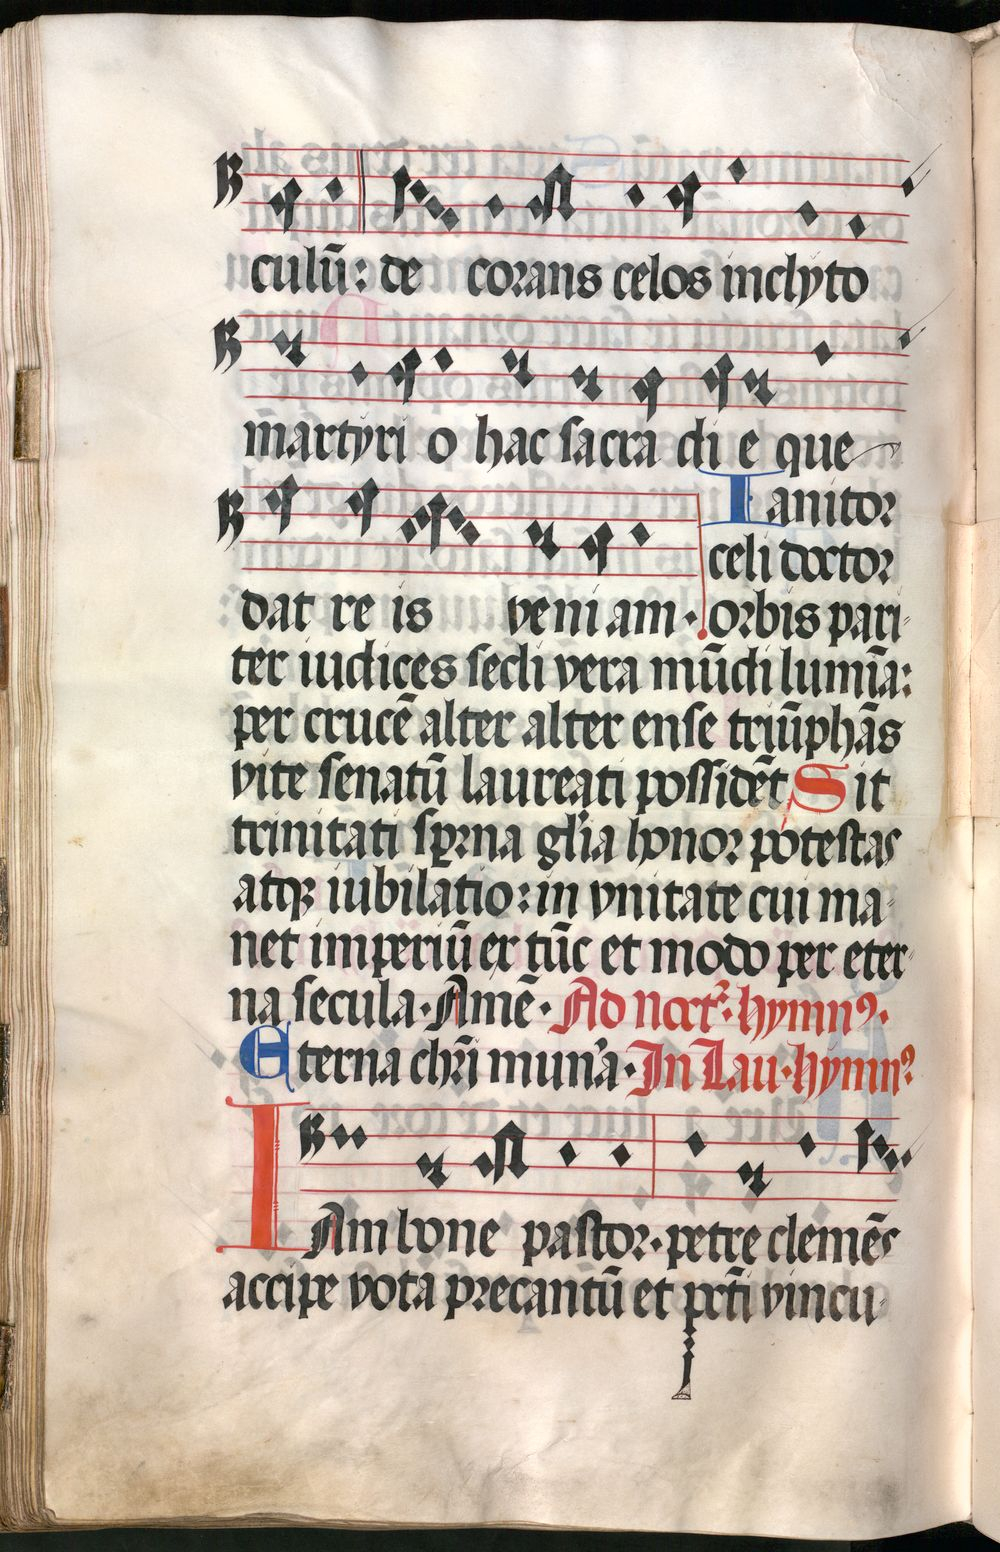 culū: de corans celos inclyto
martyri o hac sacra di e que
Ianitor
celi doctor
dat re is veni am. orbis pari
ter iudices secli vera mūdi lumīa:
per crucē alter alter ense triūphās
vite senatū laureati possidēt Sit
trinitati sp̱rna gl'ia honor potestas
atqꝫ iubilatio: in vnitate cui ma
net imperiū ex tūc et modo per eter
na secula. Amē. Ad noct. hymnꝰ.
Eterna chr̄i mun'a. In Lau. hymnꝰ
IAm bone pastor. petre clemēs
accipe vota precantū et pct̄i vincu